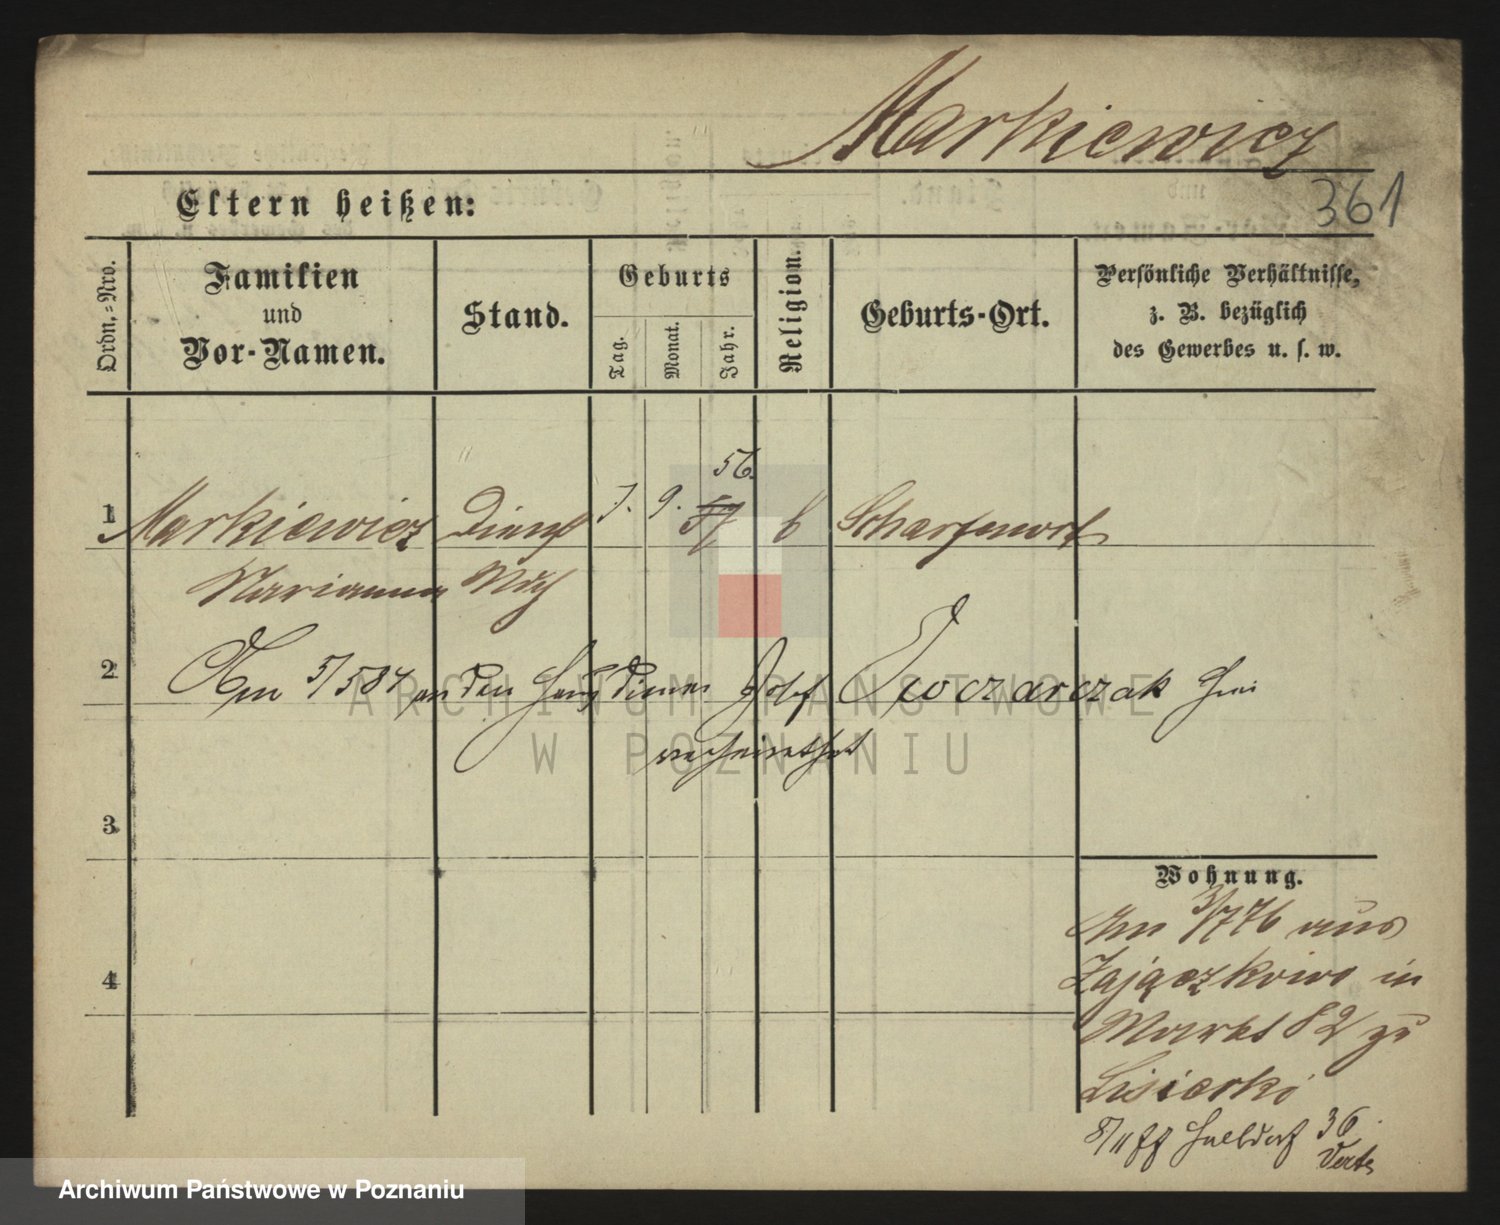 Markiewicz
361
Eltern heißen:
Ordn.-Nro.
Familien
und
Vor-Namen.
Stand.
Geburts
Tag.
Monat.
Jahr.
Religion.
Geburts-Ort.
Persönliche Verhältnisse,
z. B. bezüglich
des Gewerbes u. s. w.
56.
1 Markiewicz Dienst 7. 9. 57 k Scharfenort
Marianna
2 Am 5/5 84 an den Hausdiener Josef Twoczarczak hier
verheirathet
3
Wohnung.
Am 3/7 76 aus
4 Zajączkowo in
Markt 82 zu
Lisiecki
8/11 77 Halbdorf 36
Verte
ARCHIWUM PAŃSTWOWE
W POZNANIU
Archiwum Państwowe w Poznaniu